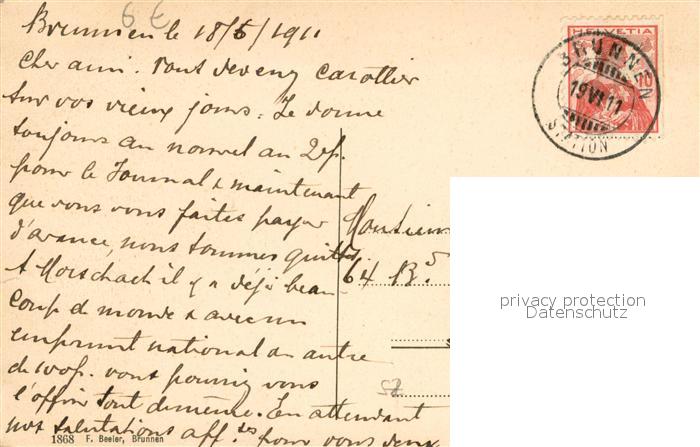 6 €
Brunnen le 18/6/1911
HELVETIA
10
BRUNNEN
19 VI. 11
STATION
cher ami. Vous devenez carottier
sur vos vieux jours. Je donne
toujours au nouvel an 2 f.
pour le Journal & maintenant
que vous vous faites payer
d'avance, nous sommes quittes.
A Morschach il y a déjà beau
coup de monde & avec un
emprunt national ou autre
de vous pourriez vous
l'offrir tout de même. En attendant
nos salutations aff. tes pour vous deux
Monsieur
64 Bd.
privacy protection
Datenschutz
58
1868 F. Beeler, Brunnen